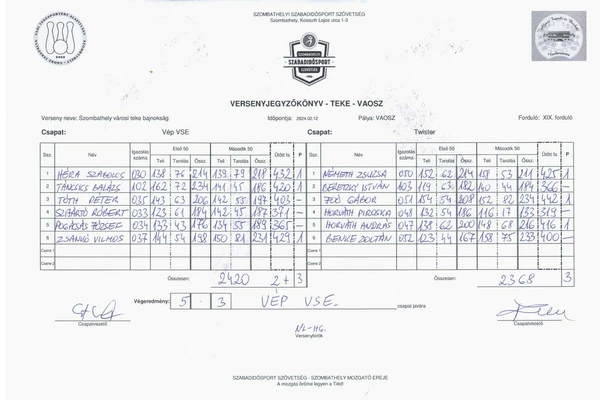 SZOMBATHELYI SZABADIDŐSPORT SZÖVETSÉG
Szombathely, Kossuth Lajos utca 1-3
SZOMBATHELYI
SZABADIDŐSPORT
SZÖVETSÉG
VERSENYJEGYZŐKÖNYV - TEKE - VAOSZ
Verseny neve: Szombathely városi teke bajnokság Időpontja: 2024.02.12 Pálya: VAOSZ Forduló: XIX. forduló
Csapat: Vép VSE Csapat: Twister
Ssz. Név Igazolás száma Első 50 Második 50 Ütött fa P Ssz. Név Igazolás száma Első 50 Második 50 Ütött fa P
Teli Tarolás Össz. Teli Tarolás Össz. Teli Tarolás Össz. Teli Tarolás Össz.
1 HÉRA SZABOLCS 030 138 76 214 139 79 218 432 1 1 NÉMETH ZSUZSA 050 152 62 214 158 53 211 425 1
2 TAKÁCS BALÁZS 102 162 72 234 141 45 186 420 1 2 BERETZKY ISTVÁN 103 119 63 182 140 44 184 366 -
3 TÓTH PÉTER 035 143 63 206 142 55 197 403 - 3 JOÓ GÁBOR 051 154 54 208 152 82 234 442 1
4 SZITÁRTÓ RÓBERT 033 123 61 184 142 45 187 371 - 4 HORVÁTH PIROSKA 048 132 54 186 116 17 133 319 -
5 POGÁCSÁS JÓZSEF 034 133 43 176 134 55 189 365 - 5 HORVÁTH ANDRÁS 047 138 62 200 148 68 216 416 1
6 ZSANKÓ VILMOS 037 144 54 198 150 81 231 429 1 6 BENKE ZOLTÁN 052 123 44 167 158 75 233 400 -
Csere 1 Csere 1
Csere 2 Csere 2
Összesen: 2420 2+ 3 Összesen: 2368 3
Végeredmény: 5 . 3 VÉP VSE. csapat javára
Csapatvezető Csapatvezető
NL-HG.
Versenybírók
SZABADIDŐSPORT SZÖVETSÉG - SZOMBATHELY MOZGATÓ EREJE
A mozgás öröme legyen a Tiéd!